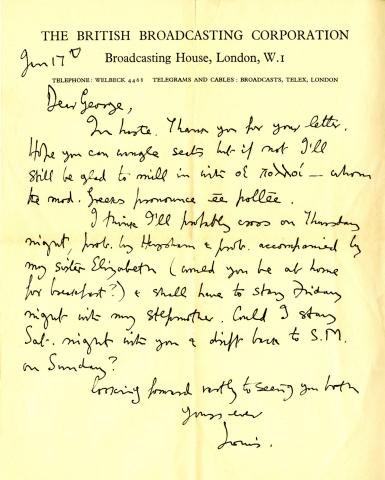 THE BRITISH BROADCASTING CORPORATION
Broadcasting House, London, W.1
TELEPHONE: WELBECK 4468 TELEGRAMS AND CABLES: BROADCASTS, TELEX, LONDON
Jan 17th
Dear George,
In haste. Thank you for your letter.
Hope you can wangle seats but if not I'll
still be glad to mill in with οἱ πολλοί — whom
the mod. Greeks pronounce ee pollee.
I think I'll probably cross on Thursday
night, prob. by Heysham & prob. accompanied by
my sister Elizabeth (would you be at home
for breakfast?) & shall have to stay Friday
night with my stepmother. Could I stay
Sat. night with you & drift back to S.M.
on Sunday?
Looking forward vastly to seeing you both
Yours ever
Louis.